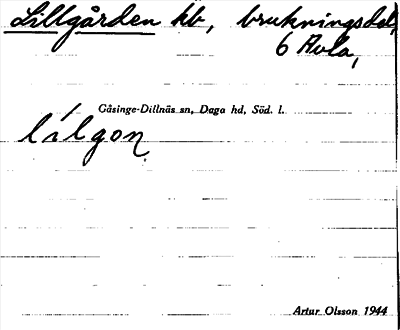 Lillgården hb, brukningsdel,
6 Avla,
Gåsinge-Dillnäs sn, Daga hd, Söd. l.
lálgon
Artur Olsson 1944